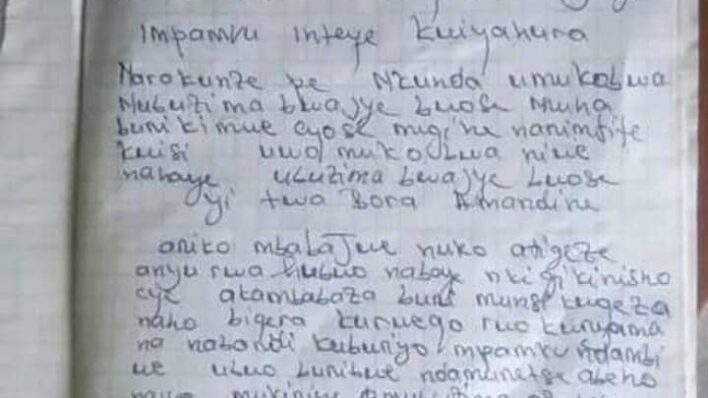 Impamvu inteye kwiyahura
Narokunze pe Nkunda umukobwa
Mubuzima bwajye bwose Muha
buri kimwe cyose mugihe nanimfite
kwisi uwo mukobwa niwe
nahaye ubuzima bwajye bwose
yitwa Bora Amandine
ariko mbabajwe nuko atigeze
anyurwa ahubwo nabaye nkigikinisho
cye akambabaza buri munsi kugeza
naho bigera kurwego rwo kuryama
na nabandi kuburyo. mpamvu Ndambi
we ubwo buribwe ndamuretse abeho